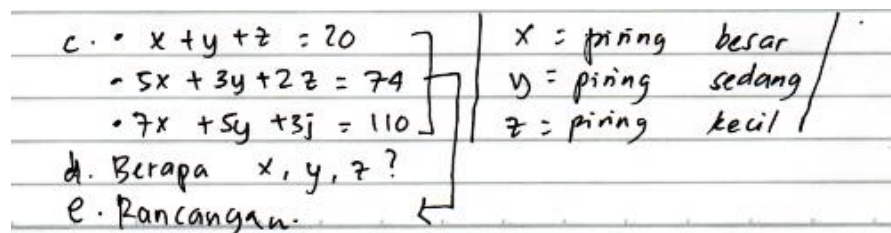 c. • x + y + z = 20
• 5x + 3y + 2z = 74
• 7x + 5y + 3j = 110
x = piring besar
y = piring sedang
z = piring kecil
d. Berapa x, y, z?
e. Rancangan.